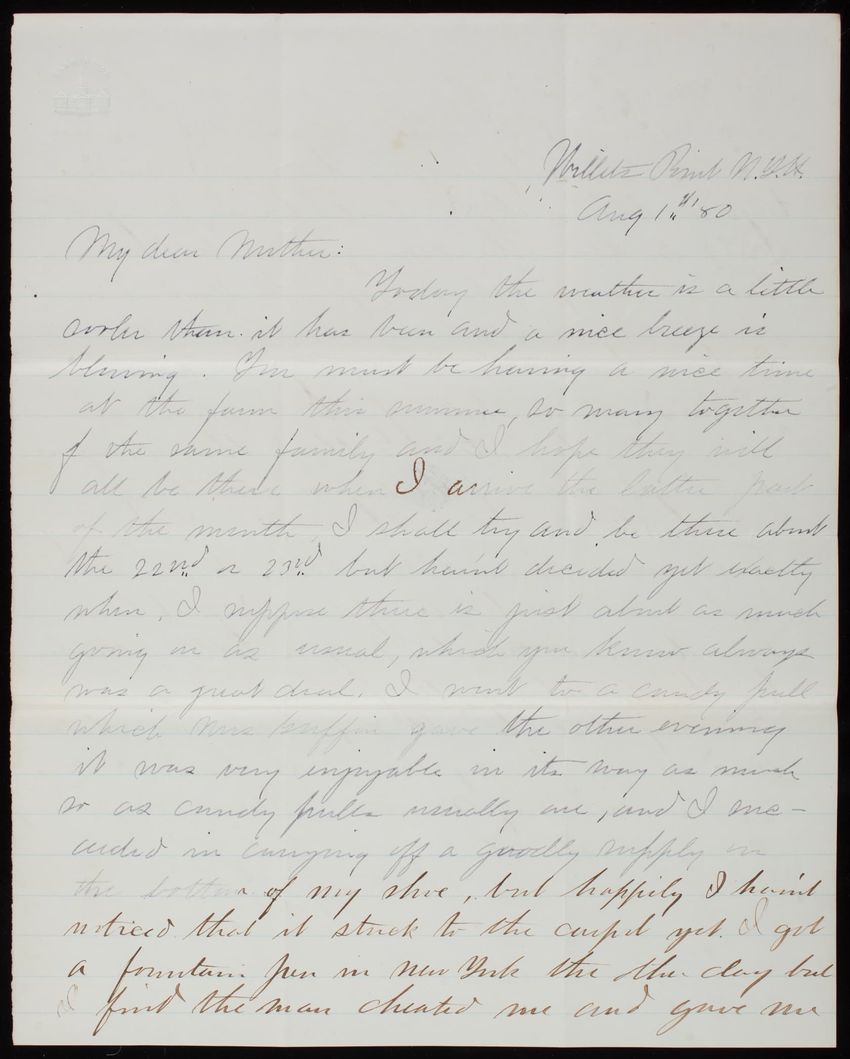 Willets Point N.Y.H.
Aug 1st '80
My dear Mother:
Today the weather is a little
cooler than it has been and a nice breeze is
blowing. You must be having a nice time
at the farm this summer, so many together
of the same family and I hope they will
all be there when I arrive the latter part
of the month, I shall try and be there about
the 22nd or 23rd but hav'nt decided yet exactly
when, I suppose there is just about as much
going on as usual, which you know always
was a great deal. I went to a candy pull
which Mrs gave the other evening
it was very enjoyable in its way as much
so as candy pulls usually are, and I suc-
ceeded in carrying off a goodly supply on
the bottom of my shoe, but happily I hav'nt
noticed that it stuck to the carpet yet. I got
a fountain pen in New York the other day but
I find the man cheated me and gave me